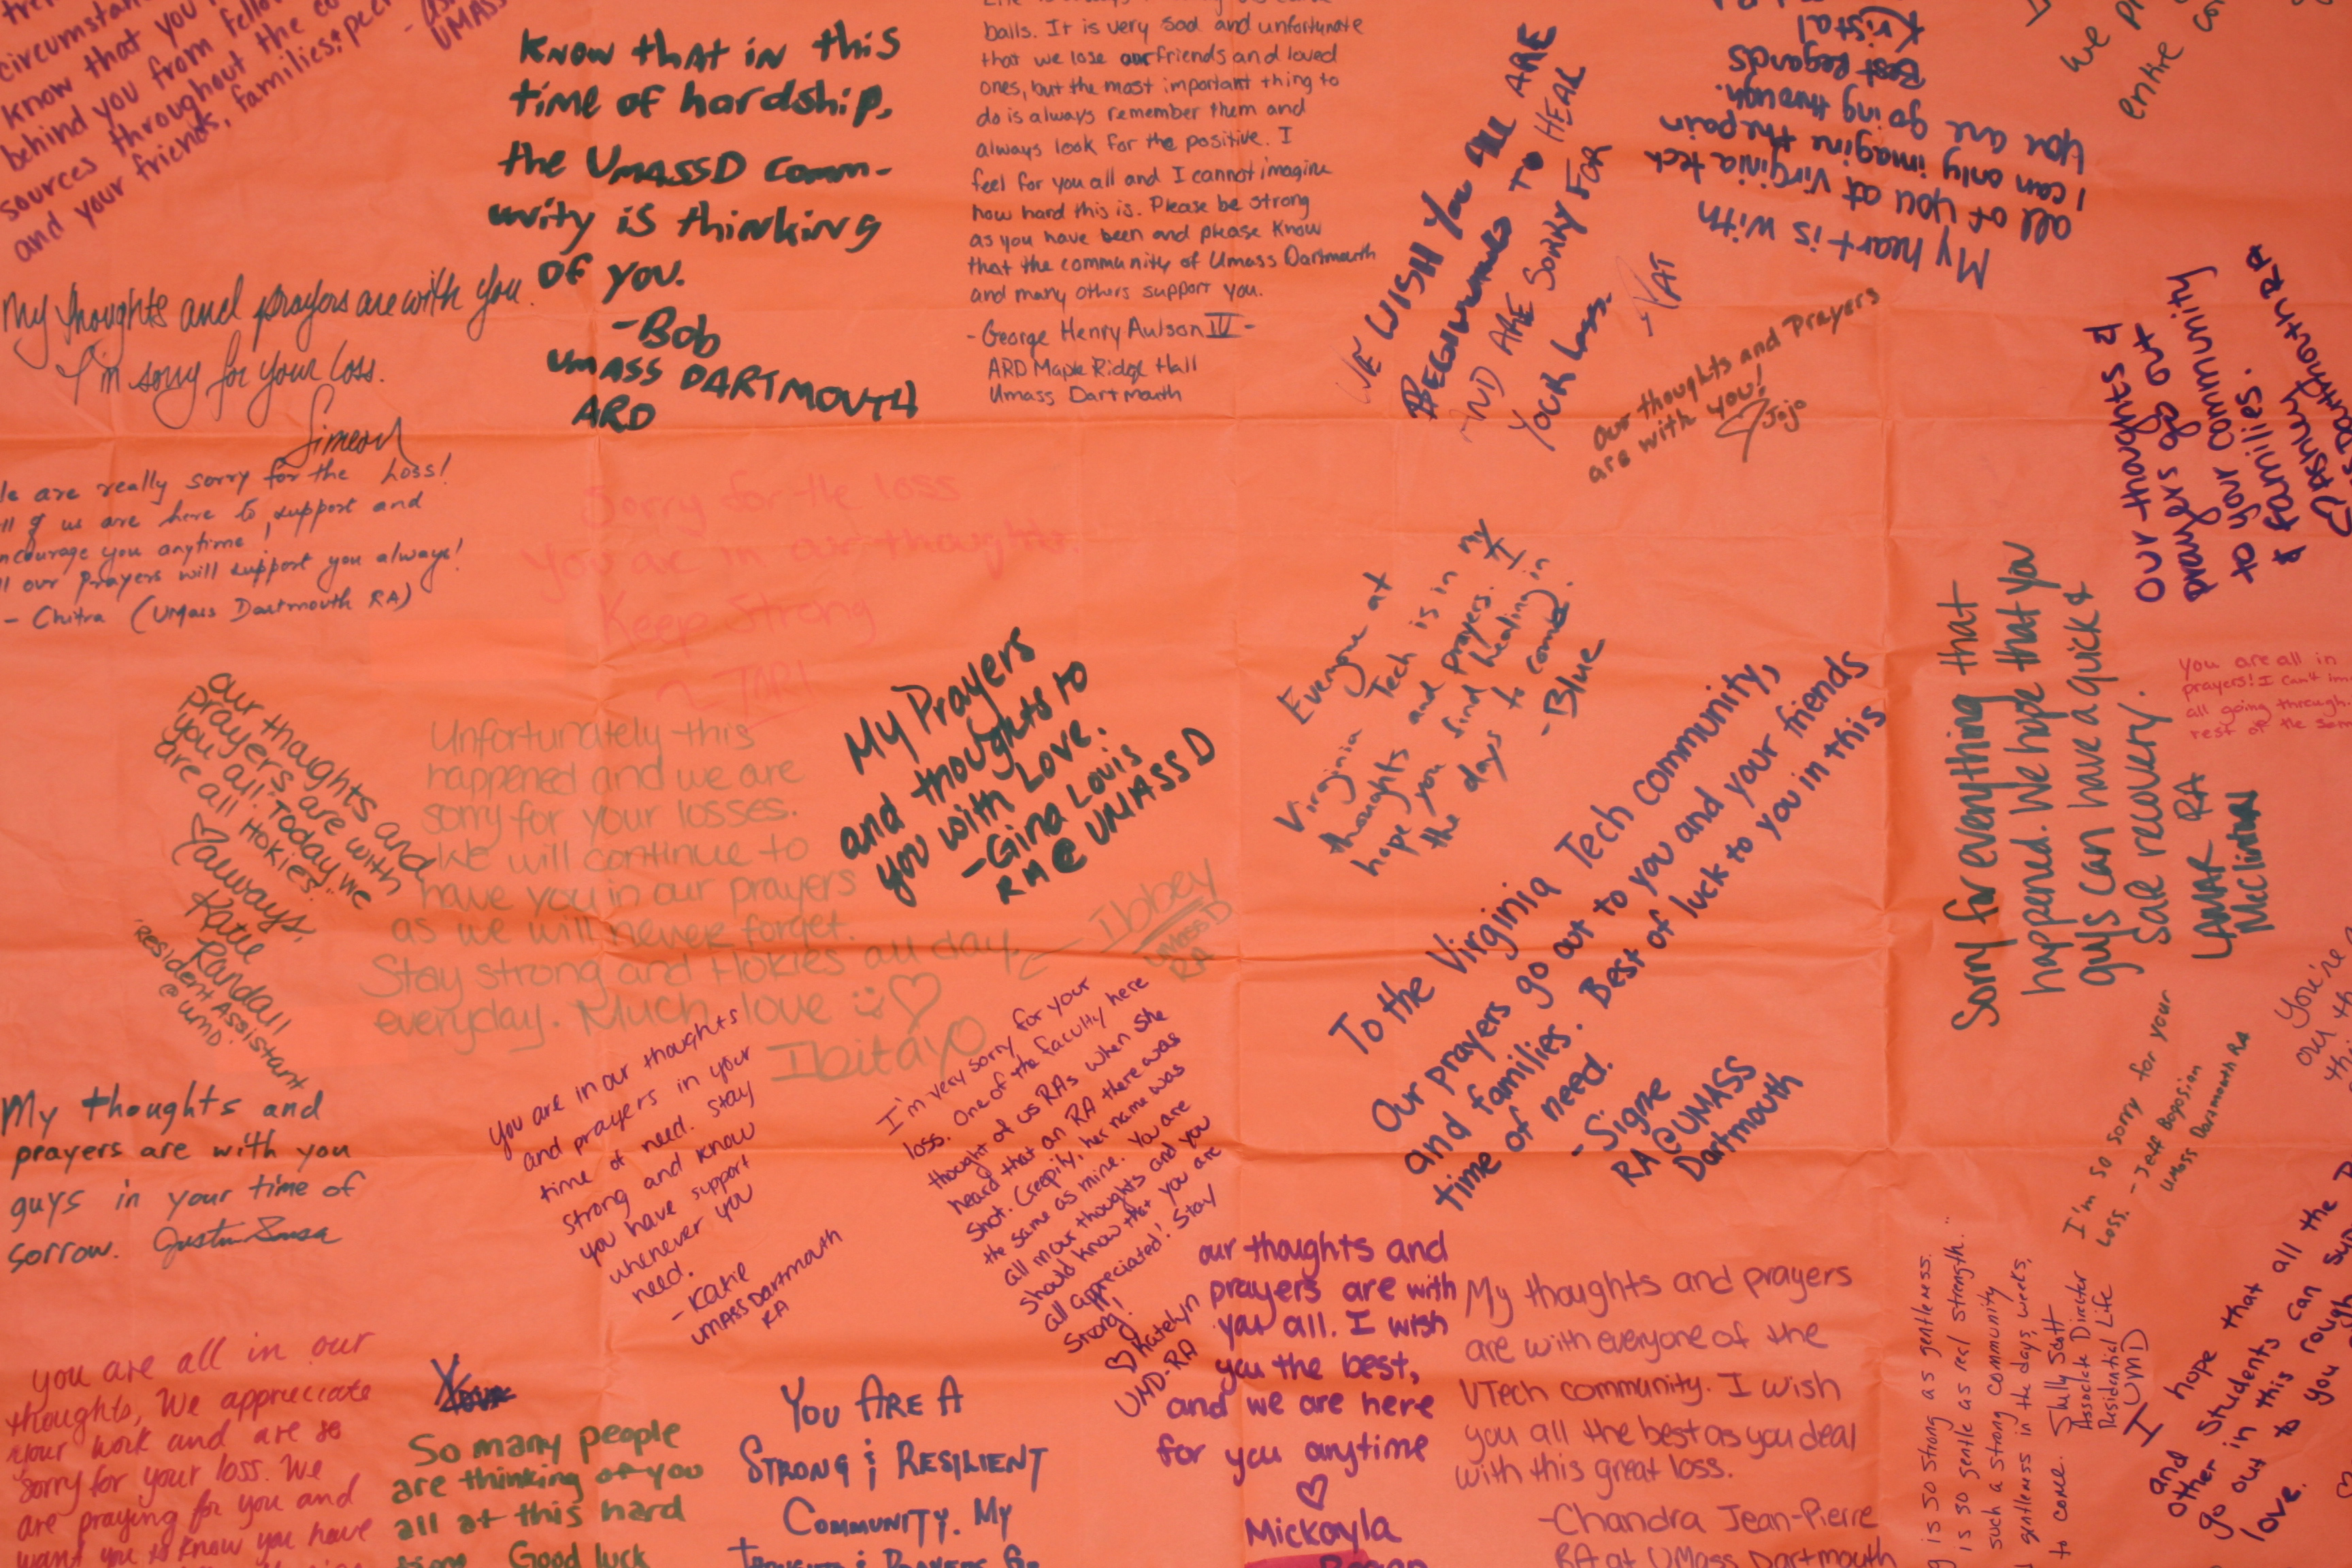 circumstan
know that you
behind you from fello
sources throughout the co
and your friends, families & peer
UMASS
Know that in this
time of hardship,
the UMASSD comm-
unity is thinking
of you.
- Bob
UMASS DARTMOUTH
ARD
balls. It is very sad and unfortunate
that we lose our friends and loved
ones, but the most important thing to
do is always remember them and
always look for the positive. I
feel for you all and I cannot imagine
how hard this is. Please be strong
as you have been and please know
that the community of Umass Dartmouth
and many others support you.
- George Henry Aulson IV -
ARD Maple Ridge Hall
Umass Dartmouth
WE WISH YOU All ARE
BEGINNINGS TO HEAL
AND ARE SORRY FOR
YOUR LOSS.
PAT
My heart is with
all of you at Virginia tech
I can only imagine the pain
you are going through.
Best Regards
Kristal
we pr
entire co
My thoughts and prayers are with you.
I'm sorry for your loss.
Simeon
our thoughts and Prayers
are with you!
Jojo
Our thoughts &
prayers go out
to your community
to your families.
& families.
Dartmouth RA
le are really sorry for the Loss!
ll of us are here to support and
ncourage you anytime!
ll our Prayers will support you always!
- Chitra (UMass Dartmouth RA)
Sorry for the loss
You are in our thoughts.
Keep Strong
Everyone at
Virginia Tech is in my
thoughts and prayers. I
hope you find healing in
the days to come.
- Blue
Sorry for everything that
happened. We hope that you
guys can have a quick &
safe recovery.
LAMAR RA
McClinton
You are all in
prayers! I can't im
all going through.
rest of the
our thoughts and
prayers are with
you all. Today we
are all Hokies!
♡always,
Katie
Randall
Resident Assistant
@ UMD.
Unfortunately this
happened and we are
sorry for your losses.
We will continue to
have you in our prayers
as we will never forget.
Stay strong and Hokies all day,
everyday. Much love ☺♡
Ibitayo
- Ibbey
UMASS D
RA
My Prayers
and thoughts to
you with Love.
- Gina Louis
RA @ UMASS D
To the Virginia Tech community,
Our prayers go out to you and your friends
and families. Best of luck to you in this
time of need.
- Signe
RA @ UMASS
Dartmouth
My thoughts and
prayers are with you
guys in your time of
sorrow. Justin Sousa
You are in our thoughts
and prayers in your
time of need. Stay
strong and know
you have support
whenever you
need.
- Katie
UMASS Dartmouth
RA
I'm very sorry for your
loss. One of the faculty here
thought of us RAs when she
heard that an RA there was
shot. Creepily, her name was
the same as mine. You are
all in our thoughts and you
should know that you are
all appreciated! Stay
Strong!
♡ Katelyn
UMD-RA
I'm so sorry for your
Loss. - Jeff Bogosian
UMass Dartmouth RA
You're
our th
our thoughts and
prayers are with
yat all. I wish
you the best,
and we are here
for you anytime
♡
Mickayla
My thoughts and prayers
are with everyone of the
VTech community. I wish
you all the best as you deal
with this great loss.
- Chandra Jean-Pierre
RA at UMass Dartmouth
g is so strong as gentleness.
is so gentle as real strength."
such a strong community
gentleness in the days, weeks,
to come. Shelly Scott
Associate Director
Residential Life
UMD
I hope that all the
and Students can
other in this rough
go out to you
love.
you are all in our
thoughts, We appreciate
your work and are so
sorry for your loss. We
are praying for you and
want you to know you have
So many people
are thinking of you
all at this hard
time. Good luck
YOU ARE A
STRONG & RESILIENT
COMMUNITY. MY
THOUGHTS & PRAYERS GO